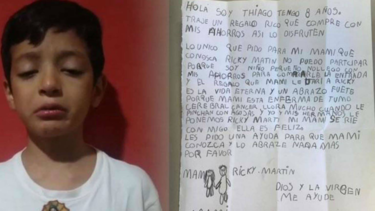 HOLA SOY THIAGO TENGO 8 AÑOS.
TRAJE UN REGALO RICO QUE COMPRE CON
MIS AHORROS ASI LO DISFRUTEN
LO UNICO QUE PIDO PARA MI MAMI QUE
CONOSCA RICKY MATIN NO PUEDO PARTICIPAR
PORQUE SOY NIÑO PEQUE
ME AHORROS PARA LA ENTRADA
EL REGALO QUE MAMI LE A RICKY
ES LA VIDA ETERNA Y UN ABRAZO FUETE
PORQUE MAMI ESTA ENFERMA DE TUMO
CEREBRAL CANCER LLORA CUANDO LE
CON Y MIS HERMANOS LE
PONEMOS RICKY MARTI MI MAMI SE RIE
CON MIGO ELLA ES FELIZ
LES PIDO UNA AYUDA PARA QUE MAMI
CONOZCA Y LO ABRAZE NADA MAS
POR FAVOR
MAMI RICKY MARTIN
DIOS Y LA VIRGEN
ME AYUDE